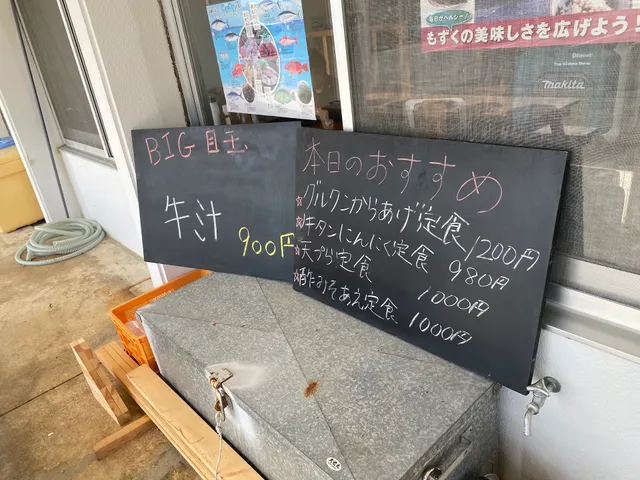 BIG 目玉
牛汁
900円
本日のおすすめ
☆グルクンからあげ定食 1200円
☆牛タンにんにく定食 980円
☆天ぷら定食 1000円
☆酢みそあえ定食 1000円
毎日がヘルシー♪
もずくの美味しさを広げよう
makita